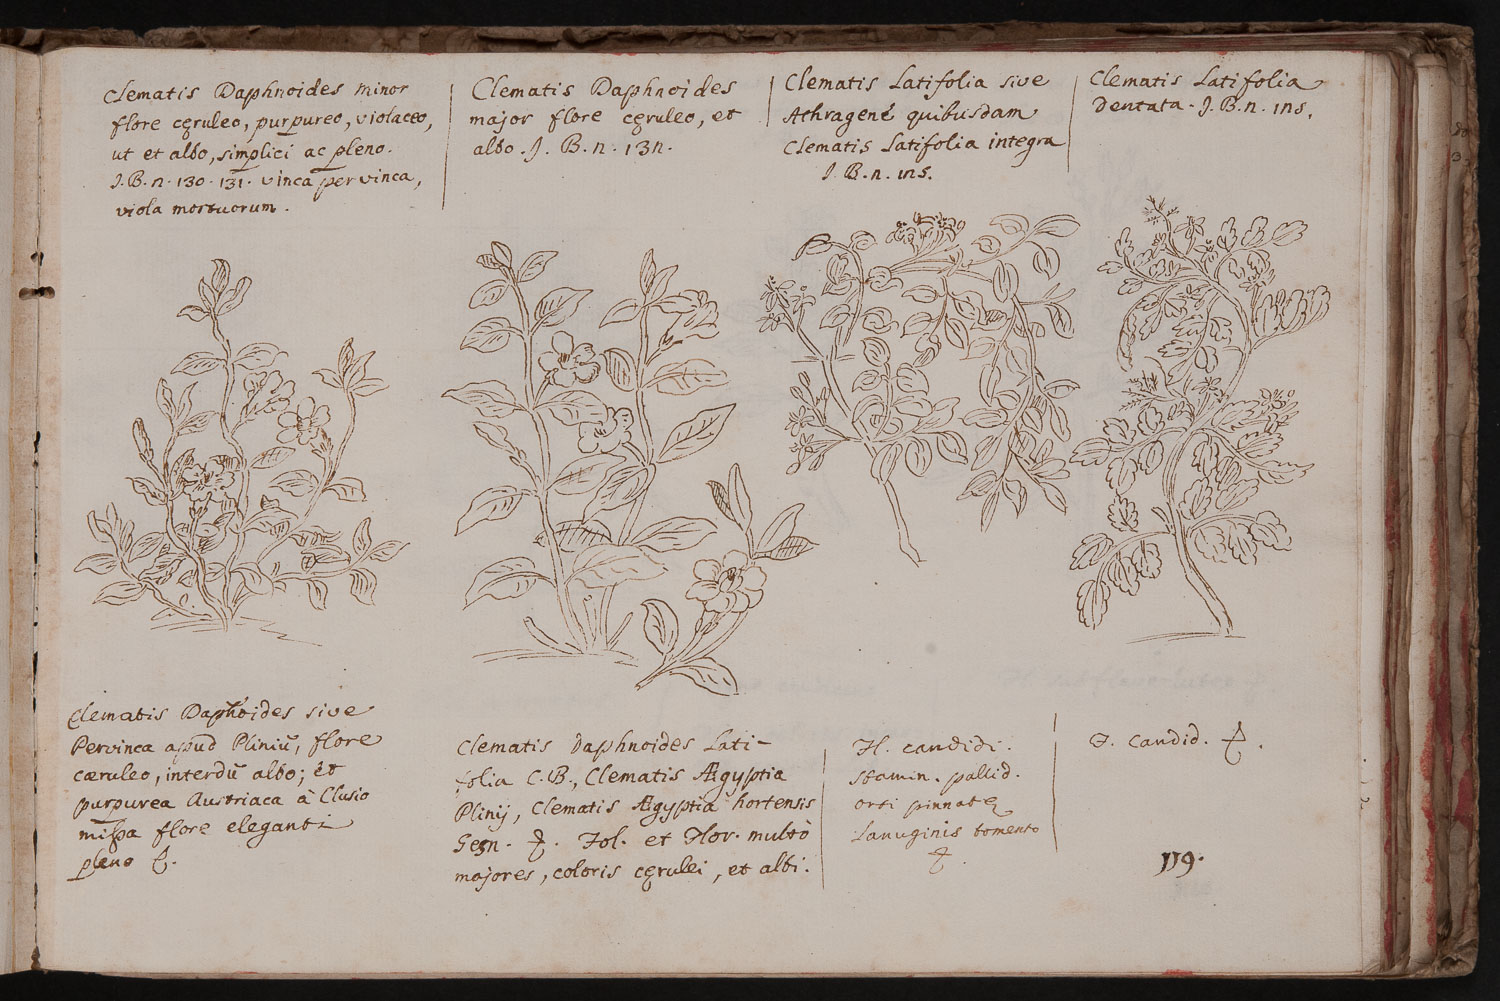 Clematis Daphnoides minor
flore cęruleo, purpureo, violaceo,
ut et albo, simplici ac pleno.
J. B. n. 130. 131. vinca pervinca,
viola mortuorum.
Clematis Daphnoides
major flore cęruleo, et
albo. J. B. n. 132.
Clematis Latifolia sive
Athragené quibusdam
Clematis Latifolia integra
J. B. n. ins.
Clematis Latifolia
dentata. J. B. n. ins.
Clematis Daphoides sive
Pervinca apud Pliniū, flore
cæruleo, interdū albo; et
purpurea Austriaca à Clusio
missa flore eleganti
pleno ♃.
Clematis Daphnoides Lati-
folia C. B., Clematis Ægyptia
Plinij, Clematis Ægyptia hortensis
Gesn. ♃. Fol. et Flor. multò
majores, coloris cęrulei, et albi.
Fl. candidi.
stamin. pallid.
orti pinnatę
Lanuginis tomento
♃.
F. Candid. ♃.
119.